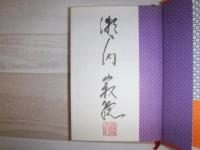 瀬戸内
寂聴